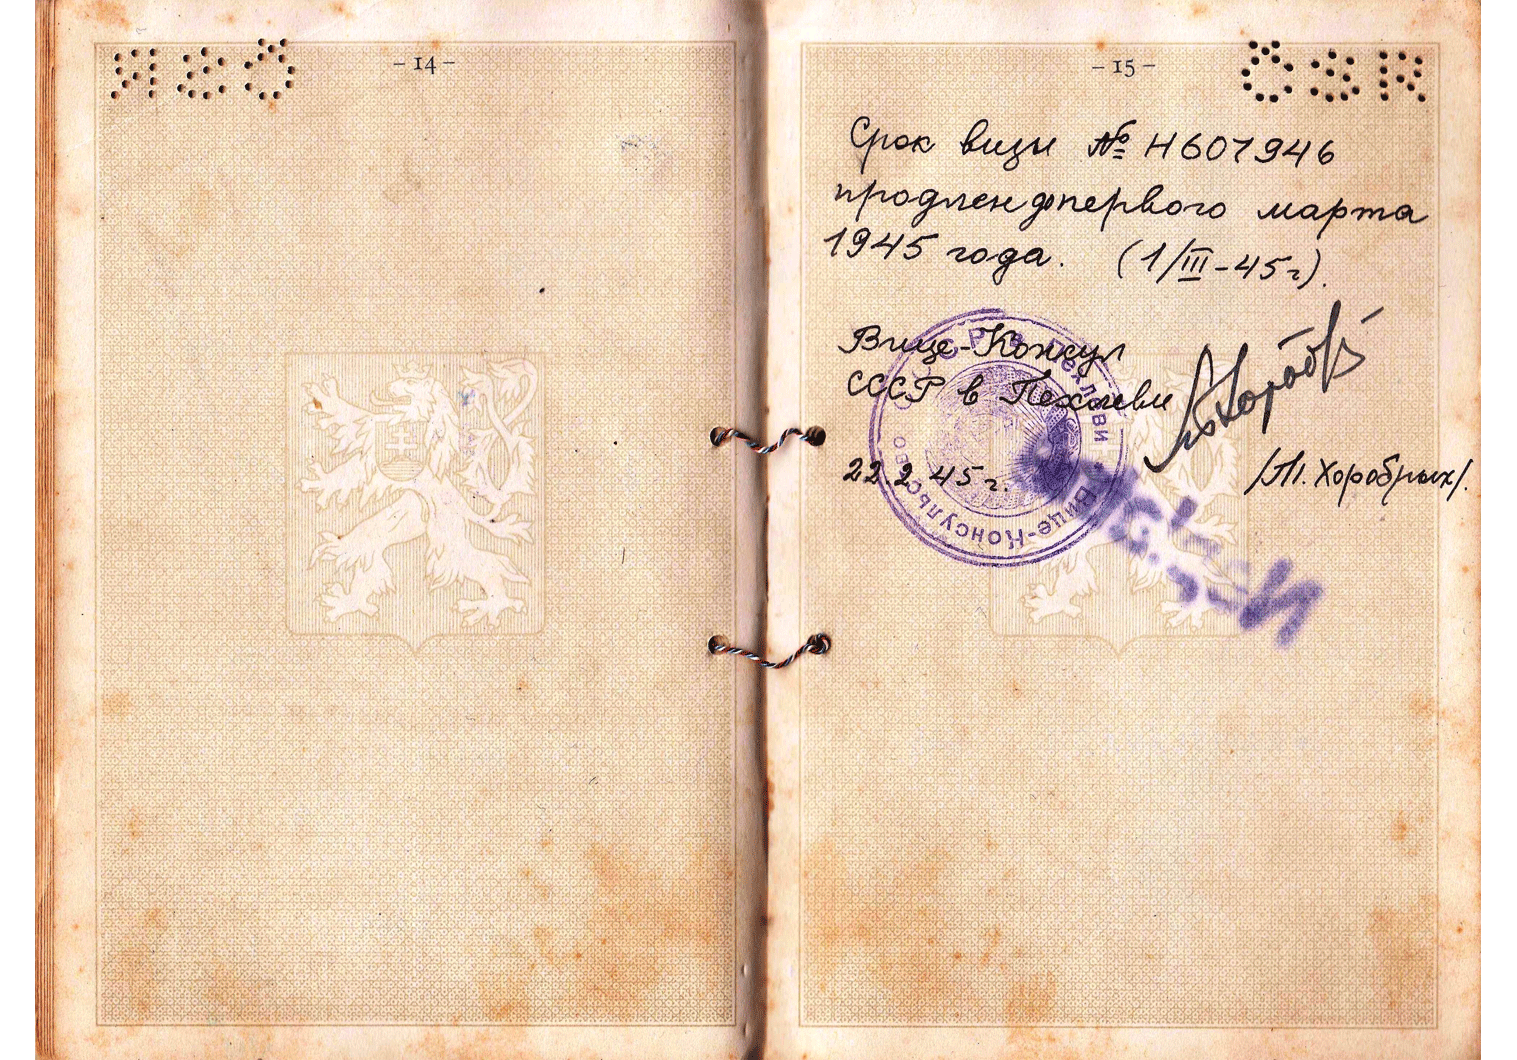 – 14 –
– 15 –
ČSR
Срок визы № Н607946
продлен до первого марта
1945 года. (1/III-45 г).
Вице-Консул
СССР в Пехлеви
22.2.45 г.
/М. Хоробрых/.
СССР в Пехлеви
Вице-Консульство